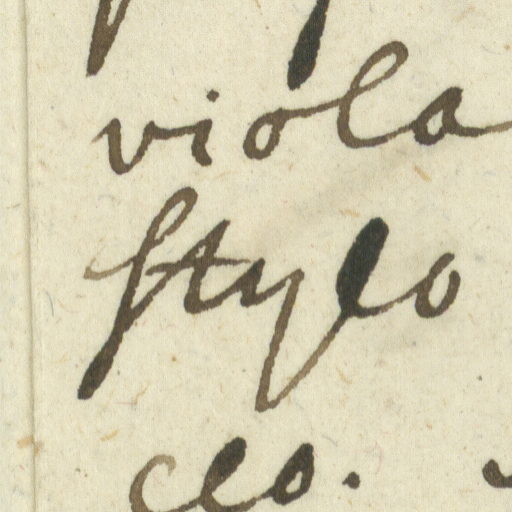 viola
stylo
cco.